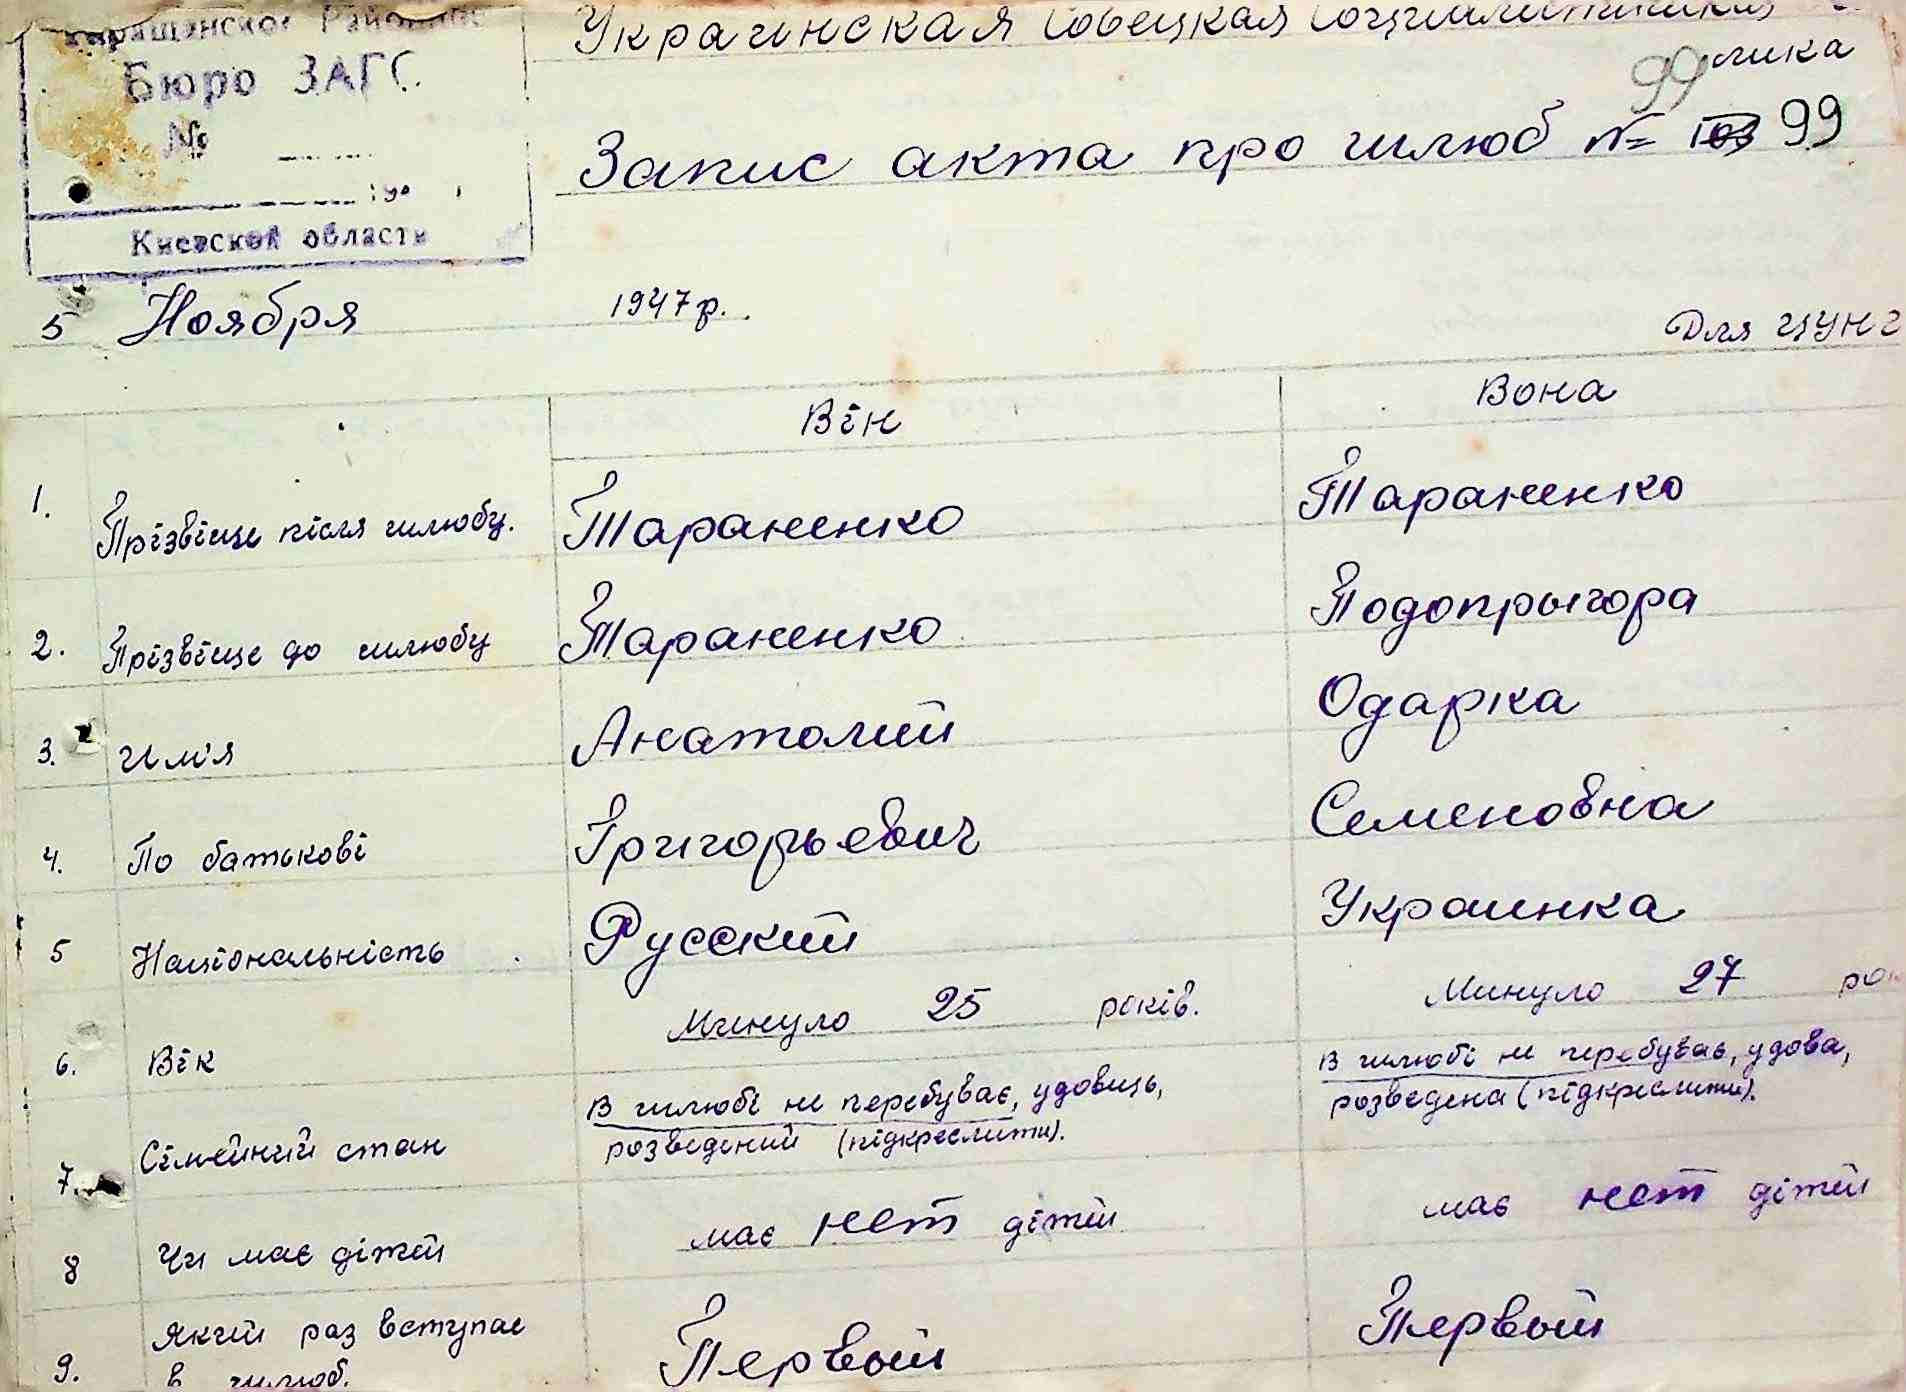 Районное
Бюро ЗАГС
№
19
Киевской области
Украинская Советская Социалистическая
лика
99
Запис акта про шлюб № 103 99
5 Ноября 1947 р.
Для ЦУНГ
Він Вона
1. Прізвіще після шлюбу. Тараненко Тараненко
2. Прізвіще до шлюбу Тараненко Подопрыгора
3. Им'я Анатолий Одарка
4. По батькові Григорьевич Семеновна
5 Національність Русский Украинка
6. Вік Минуло 25 років. Минуло 27 рок
7. Сімейний стан В шлюбі не перебуває, удовиць, В шлюбі не перебуває, удова,
розведений (підкреслити). розведена (підкреслити).
8 Чи має дітей має нет дітей має нет дітей
9. Який раз вступає Первый Первый
в шлюб.